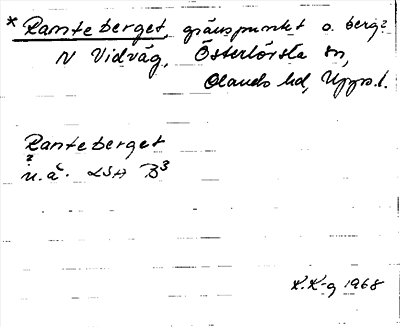 * Ranteberget, gränspunkt o. berg?
N Vidväg, Österlövsta sn,
Olands hd, Upps. l.
Ranteberget
?
n.ä. LSA B3
K.K-g 1968